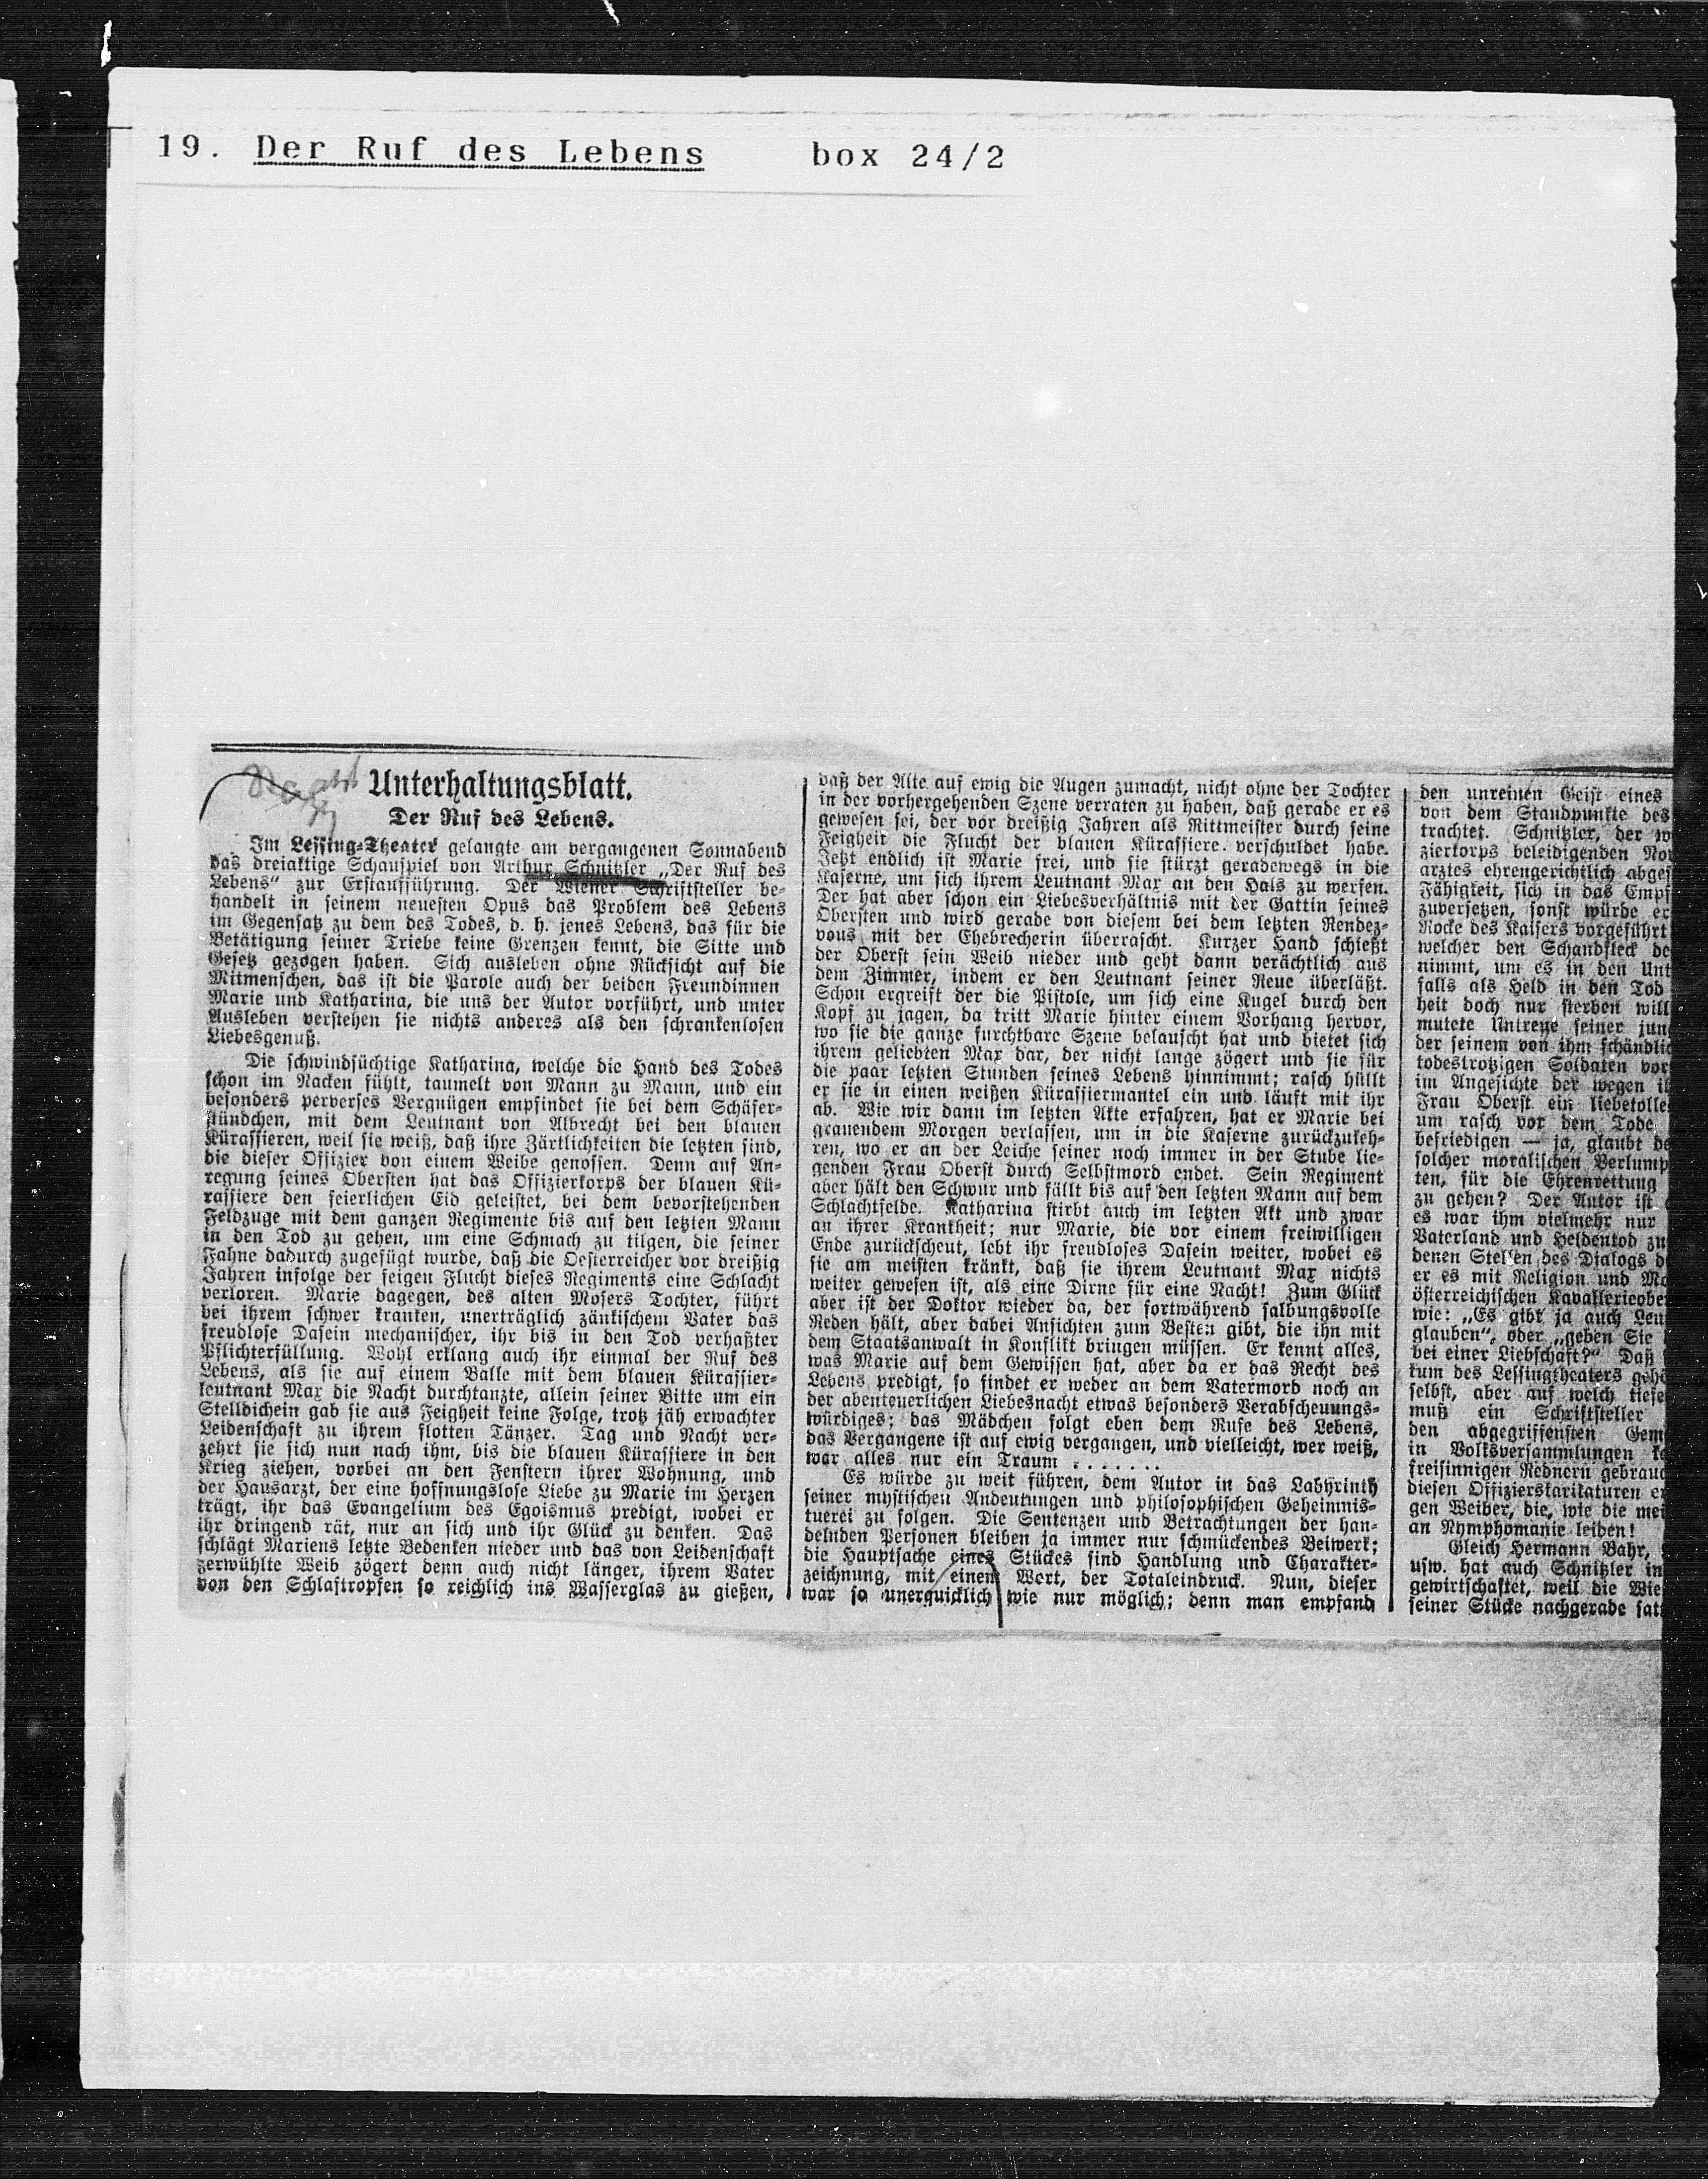 19. Der Ruf des Lebens box 24/2
Unterhaltungsblatt.
Der Ruf des Lebens.
Im Lessing-Theater gelangte am vergangenen Sonnabend
das dreiaktige Schauspiel von Arthur Schnitzler „Der Ruf des
Lebens“ zur Erstaufführung. Der Wiener Schriftsteller be-
handelt in seinem neuesten Opus das Problem des Lebens
im Gegensatz zu dem des Todes, d. h. jenes Lebens, das für die
Betätigung seiner Triebe keine Grenzen kennt, die Sitte und
Gesetz gezogen haben. Sich ausleben ohne Rücksicht auf die
Mitmenschen, das ist die Parole auch der beiden Freundinnen
Marie und Katharina, die uns der Autor vorführt, und unter
Ausleben verstehen sie nichts anderes als den schrankenlosen
Liebesgenuß.
Die schwindsüchtige Katharina, welche die Hand des Todes
schon im Nacken fühlt, taumelt von Mann zu Mann, und ein
besonders perverses Vergnügen empfindet sie bei dem Schäfer-
stündchen, mit dem Leutnant von Albrecht bei den blauen
Kürassieren, weil sie weiß, daß ihre Zärtlichkeiten die letzten sind,
die dieser Offizier von einem Weibe genossen. Denn auf An-
regung seines Obersten hat das Offizierkorps der blauen Kü-
rassiere den feierlichen Eid geleistet, bei dem bevorstehenden
Feldzuge mit dem ganzen Regimente bis auf den letzten Mann
in den Tod zu gehen, um eine Schmach zu tilgen, die seiner
Fahne dadurch zugefügt wurde, daß die Oesterreicher vor dreißig
Jahren infolge der feigen Flucht dieses Regiments eine Schlacht
verloren. Marie dagegen, des alten Mosers Tochter, führt
bei ihrem schwer kranken, unerträglich zänkischem Vater das
freudlose Dasein mechanischer, ihr bis in den Tod verhaßter
Pflichterfüllung. Wohl erklang auch ihr einmal der Ruf des
Lebens, als sie auf einem Balle mit dem blauen Kürassier-
leutnant Max die Nacht durchtanzte, allein seiner Bitte um ein
Stelldichein gab sie aus Feigheit keine Folge, trotz jäh erwachter
Leidenschaft zu ihrem flotten Tänzer. Tag und Nacht ver-
zehrt sie sich nun nach ihm, bis die blauen Kürassiere in den
Krieg ziehen, vorbei an den Fenstern ihrer Wohnung, und
der Hausarzt, der eine hoffnungslose Liebe zu Marie im Herzen
trägt, ihr das Evangelium des Egoismus predigt, wobei er
ihr dringend rät, nur an sich und ihr Glück zu denken. Das
schlägt Mariens letzte Bedenken nieder und das von Leidenschaft
zerwühlte Weib zögert denn auch nicht länger, ihrem Vater
von den Schlaftropfen so reichlich ins Wasserglas zu gießen,
daß der Alte auf ewig die Augen zumacht, nicht ohne der Tochter
in der vorhergehenden Szene verraten zu haben, daß gerade er es
gewesen sei, der vor dreißig Jahren als Rittmeister durch seine
Feigheit die Flucht der blauen Kürassiere verschuldet habe.
Jetzt endlich ist Marie frei, und sie stürzt geradewegs in die
Kaserne, um sich ihrem Leutnant Max an den Hals zu werfen.
Der hat aber schon ein Liebesverhältnis mit der Gattin seines
Obersten und wird gerade von diesem bei dem letzten Rendez-
vous mit der Ehebrecherin überrascht. Kurzer Hand schießt
der Oberst sein Weib nieder und geht dann verächtlich aus
dem Zimmer, indem er den Leutnant seiner Reue überläßt.
Schon ergreift der die Pistole, um sich eine Kugel durch den
Kopf zu jagen, da tritt Marie hinter einem Vorhang hervor,
wo sie die ganze furchtbare Szene belauscht hat und bietet sich
ihrem geliebten Max dar, der nicht lange zögert und sie für
die paar letzten Stunden seines Lebens hinnimmt; rasch hüllt
er sie in einen weißen Kürassiermantel ein und läuft mit ihr
ab. Wie wir dann im letzten Akte erfahren, hat er Marie bei
grauendem Morgen verlassen, um in die Kaserne zurückzukeh-
ren, wo er an der Leiche seiner noch immer in der Stube lie-
genden Frau Oberst durch Selbstmord endet. Sein Regiment
aber hält den Schwur und fällt bis auf den letzten Mann auf dem
Schlachtfelde. Katharina stirbt auch im letzten Akt und zwar
an ihrer Krankheit; nur Marie, die vor einem freiwilligen
Ende zurückscheut, lebt ihr freudloses Dasein weiter, wobei es
sie am meisten kränkt, daß sie ihrem Leutnant Max nichts
weiter gewesen ist, als eine Dirne für eine Nacht! Zum Glück
aber ist der Doktor wieder da, der fortwährend salbungsvolle
Reden hält, aber dabei Ansichten zum Besten gibt, die ihn mit
dem Staatsanwalt in Konflikt bringen müssen. Er kennt alles,
was Marie auf dem Gewissen hat, aber da er das Recht des
Lebens predigt, so findet er weder an dem Vatermord noch an
der abenteuerlichen Liebesnacht etwas besonders Verabscheuungs-
würdiges; das Mädchen folgt eben dem Rufe des Lebens,
das Vergangene ist auf ewig vergangen, und vielleicht, wer weiß,
war alles nur ein Traum . . . . . . .
Es würde zu weit führen, dem Autor in das Labyrinth
seiner mystischen Andeutungen und philosophischen Geheimnis-
tuerei zu folgen. Die Sentenzen und Betrachtungen der han-
delnden Personen bleiben ja immer nur schmückendes Beiwerk;
die Hauptsache eines Stückes sind Handlung und Charakter-
zeichnung, mit einem Wort, der Totaleindruck. Nun, dieser
war so unerquicklich wie nur möglich; denn man empfand
den unreinen Geist eines
von dem Standpunkte des
trachtet. Schnitzler, der w
zierkorps beleidigenden Nov
arztes ehrengerichtlich abges
Fähigkeit, sich in das Empf
zuversetzen, sonst würde er
Rocke des Kaisers vorgeführt
welcher den Schandfleck de
nimmt, um es in den Unt
falls als Held in den Tod
heit doch nur sterben will
mutete Untreue seiner jun
der seinem von ihm schändlic
todestrotzigen Soldaten vor
im Angesichte der wegen ih
Frau Oberst ein liebetolle
um rasch vor dem Tode
befriedigen — ja, glaubt de
solcher moralischen Verlump
ten, für die Ehrenrettung
zu gehen? Der Autor ist
es war ihm vielmehr nur
Vaterland und Heldentod zu
denen Stellen des Dialogs d
er es mit Religion und Mo
österreichischen Kavallerieobe
wie: „Es gibt ja auch Leu
glauben“, oder „geben Sie
bei einer Liebschaft?“ Daß
kum des Lessingtheaters gehö
selbst, aber auf welch tiefe
muß ein Schriftsteller
den abgegriffensten Gem
in Volksversammlungen
freisinnigen Rednern gebrauc
diesen Offizierskarikaturen er
gen Weiber, die, wie die mei
an Nymphomanie leiden!
Gleich Hermann Bahr,
usw. hat auch Schnitzler in
gewirtschaftet, weil die Wie
seiner Stücke nachgerade satt